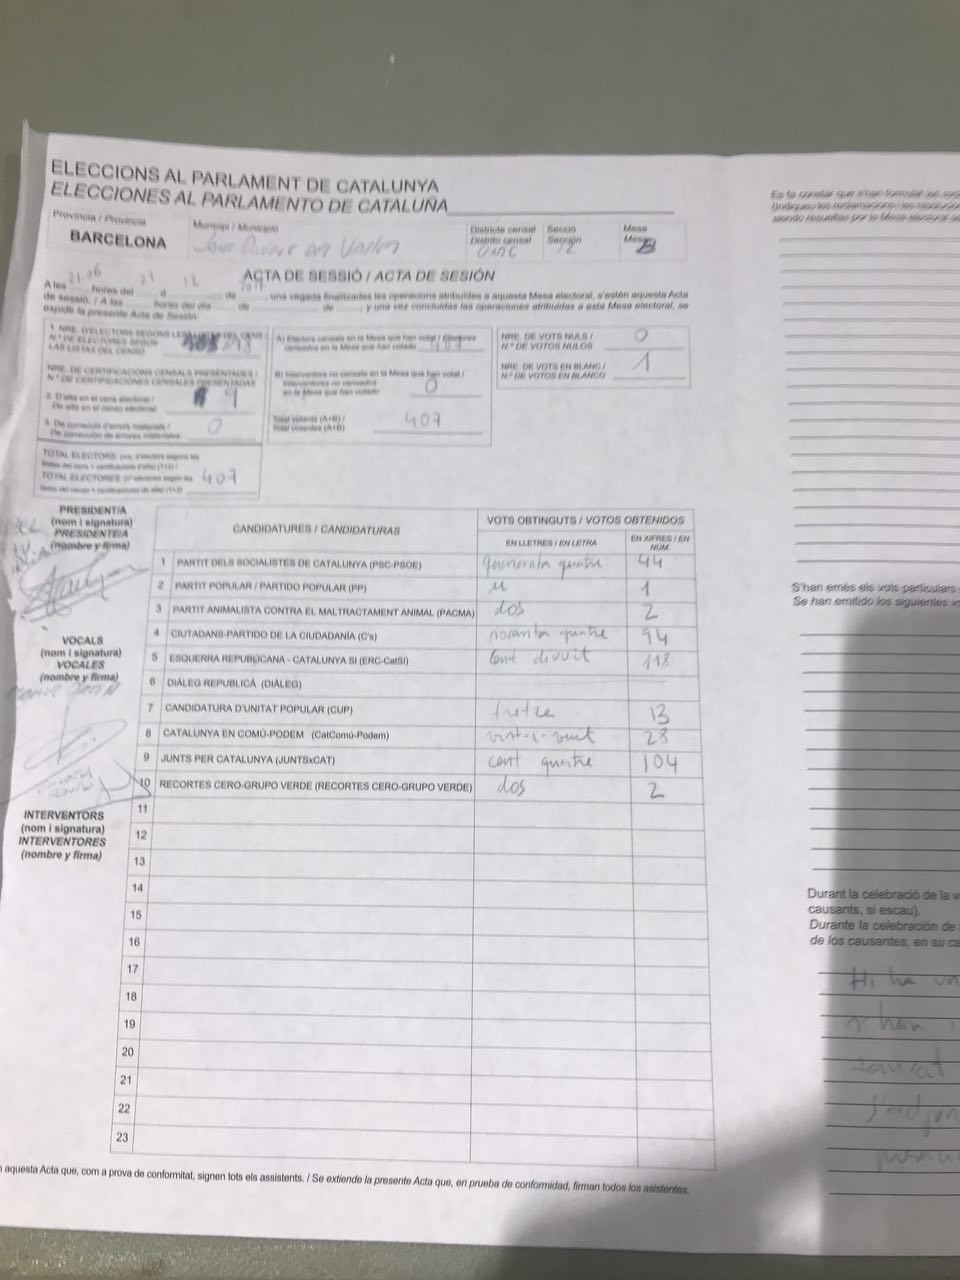 ELECCIONS AL PARLAMENT DE CATALUNYA
ELECCIONES AL PARLAMENTO DE CATALUÑA
Província / Provincia
BARCELONA
Municipi / Municipio
Districte censal
Distrito censal
Secció
Sección
12
Mesa
Mesa
B
ACTA DE SESSIÓ / ACTA DE SESIÓN
A les 21.06 hores del 21 d 12 de 2017, una vegada finalitzades les operacions atribuïdes a aquesta Mesa electoral, s'estén aquesta Acta
de sessió. / A las hores del día de de y una vez concluidas las operaciones atribuidas a esta Mesa electoral, se
expide la presente Acta de Sesión.
1. NRE. D'ELECTORS SEGONS LES LLISTES DEL CENS
N.º DE ELECTORES SEGÚN
LAS LISTAS DEL CENSO
NRE. DE CERTIFICACIONS CENSALS PRESENTADES /
N.º DE CERTIFICACIONES CENSALES PRESENTADAS
2. D'alta en el cens electoral /
De alta en el censo electoral
9
3. De correcció d'errors materials /
De corrección de errores materiales
0
TOTAL ELECTORS
TOTAL ELECTORES
407
A) Electors censats en la Mesa que han votat / Electores
censados en la Mesa que han votado
407
B) Interventors no censats en la Mesa que han votat /
Interventores no censados
en la Mesa que han votado
0
Total votants (A+B) /
Total votantes (A+B)
407
NRE. DE VOTS NULS /
N.º DE VOTOS NULOS
0
NRE. DE VOTS EN BLANC /
N.º DE VOTOS EN BLANCO
1
PRESIDENT/A
(nom i signatura)
PRESIDENTE/A
(nombre y firma)
VOCALS
(nom i signatura)
VOCALES
(nombre y firma)
INTERVENTORS
(nom i signatura)
INTERVENTORES
(nombre y firma)
CANDIDATURES / CANDIDATURAS
VOTS OBTINGUTS / VOTOS OBTENIDOS
EN LLETRES / EN LETRA
EN XIFRES / EN NÚM.
1 PARTIT DELS SOCIALISTES DE CATALUNYA (PSC-PSOE) quaranta quatre 44
2 PARTIT POPULAR / PARTIDO POPULAR (PP) u 1
3 PARTIT ANIMALISTA CONTRA EL MALTRACTAMENT ANIMAL (PACMA) dos 2
4 CIUTADANS-PARTIDO DE LA CIUDADANÍA (C's) noranta quatre 94
5 ESQUERRA REPUBLICANA - CATALUNYA SÍ (ERC-CatSí) Cent divuit 118
6 DIÀLEG REPUBLICÀ (DIÀLEG)
7 CANDIDATURA D'UNITAT POPULAR (CUP) tretze 13
8 CATALUNYA EN COMÚ-PODEM (CatComú-Podem) vint-i-vuit 28
9 JUNTS PER CATALUNYA (JUNTSxCAT) cent quatre 104
10 RECORTES CERO-GRUPO VERDE (RECORTES CERO-GRUPO VERDE) dos 2
11
12
13
14
15
16
17
18
19
20
21
22
23
aquesta Acta que, com a prova de conformitat, signen tots els assistents. / Se extiende la presente Acta que, en prueba de conformidad, firman todos los asistentes.
Es fa constar que s'han formulat les
(indiqueu les reclamacions i les
siendo resueltas por la Mesa electoral
S'han emès els vots particulars
Se han emitido los siguientes
Durant la celebració de la
causants, si escau).
Durante la celebración de
de los causantes, en su
Hi ha
s'han